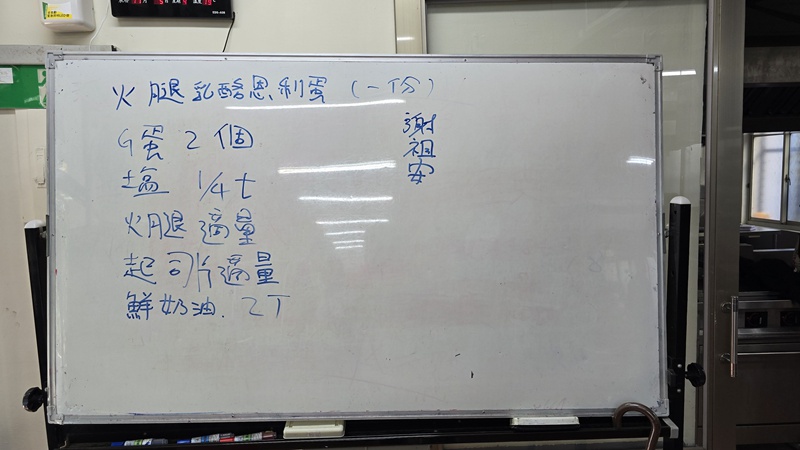 火腿乳酪恩利蛋(一份)
G蛋 2個
塩 1/4t
火腿 適量
起司片適量
鮮奶油. 2T
謝祖安